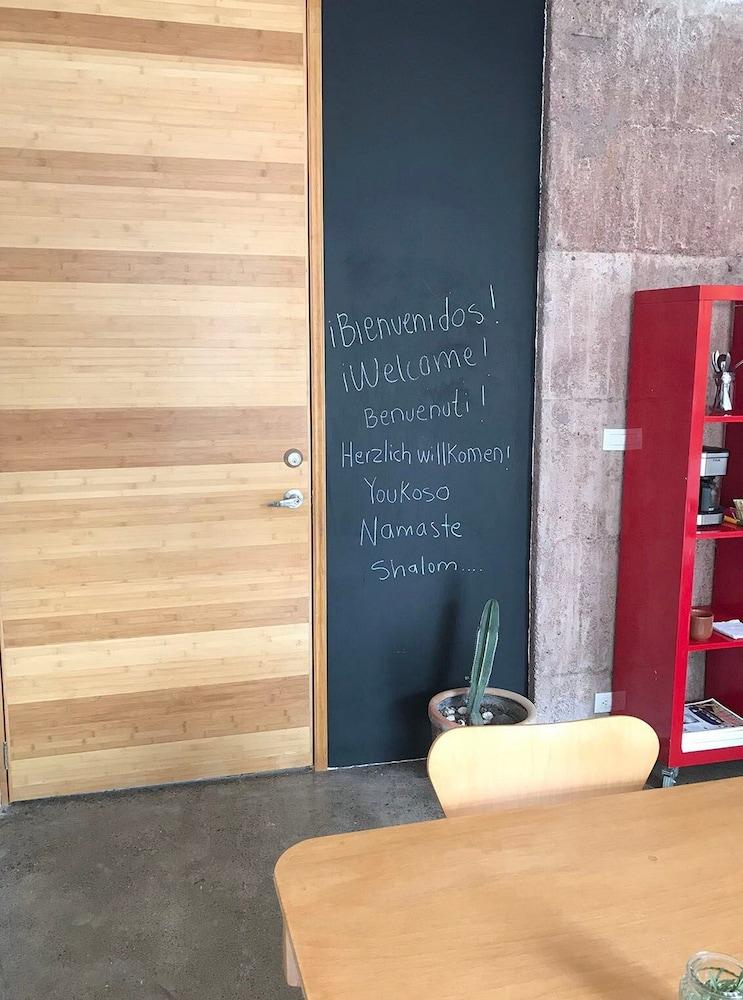 ¡Bienvenidos!
¡Welcome!
Benvenuti!
Herzlich willkomen!
Youkoso
Namaste
Shalom....